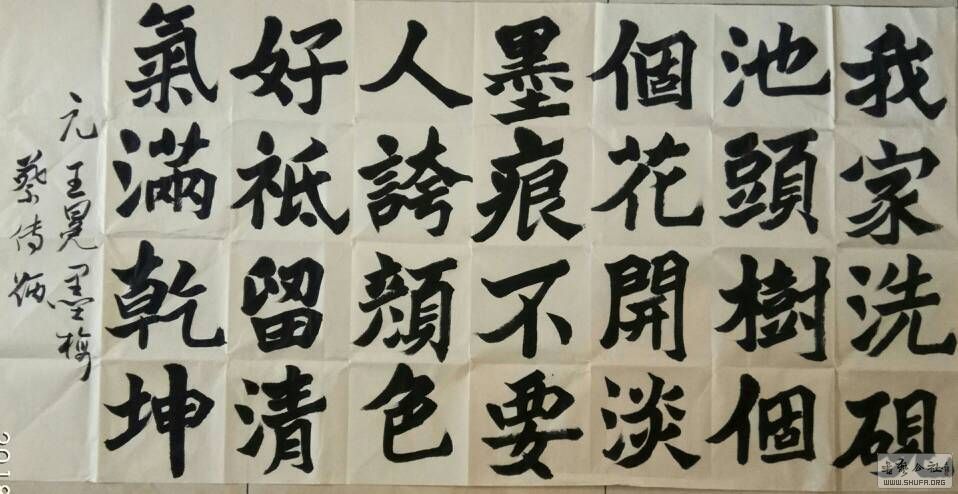 我家洗硯
池頭樹個
個花開淡
墨痕不要
人誇顏色
好祇留清
氣滿乾坤
元王冕墨梅
蔡傳
WWW.SHUFA.ORG